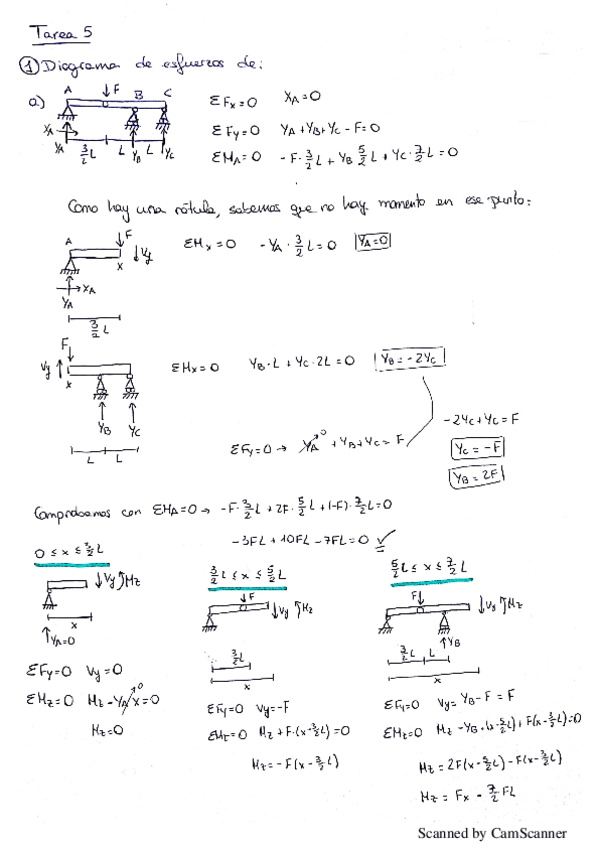 Tarea 5
① Diagrama de esfuerzos de:
a) A ↓F B C
XA YA 3/2 L L YB L YC
ΣFx=0 XA=0
ΣFy=0 YA+YB+YC-F=0
ΣMA=0 -F·3/2 L + YB 5/2 L + YC·7/2 L=0
Como hay una rótula, sabemos que no hay momento en ese punto:
A ↓F ↓Vy x
XA YA
3/2 L
ΣMx=0 -YA·3/2 L=0 YA=0
F↓ Vy↑ x
YB YC
L L
ΣMx=0 YB·L + YC·2L=0 YB=-2YC
ΣFy=0 → YA⁰ + YB+YC = F
-2YC+YC=F
YC=-F
YB=2F
Comprobamos con ΣMA=0 → -F·3/2 L + 2F·5/2 L + (-F)·7/2 L=0
-3FL + 10FL - 7FL=0 ✓
0 ≤ x ≤ 3/2 L
↓Vy Mz
x
↑YA=0
ΣFy=0 Vy=0
ΣMz=0 Mz-YA⁰x=0
Mz=0
3/2 L ≤ x ≤ 5/2 L
↓F ↓Vy Mz
3/2 L
x
ΣFy=0 Vy=-F
ΣMz=0 Mz+F·(x-3/2 L)=0
Mz=-F(x-3/2 L)
5/2 L ≤ x ≤ 7/2 L
F↓ ↓Vy Mz
↑YB
3/2 L L
x
ΣFy=0 Vy= YB-F = F
ΣMz=0 Mz -YB·(x-5/2 L)+F(x-3/2 L)=0
Mz=2F(x-5/2 L)-F(x-3/2 L)
Mz = Fx - 7/2 FL
Scanned by CamScanner